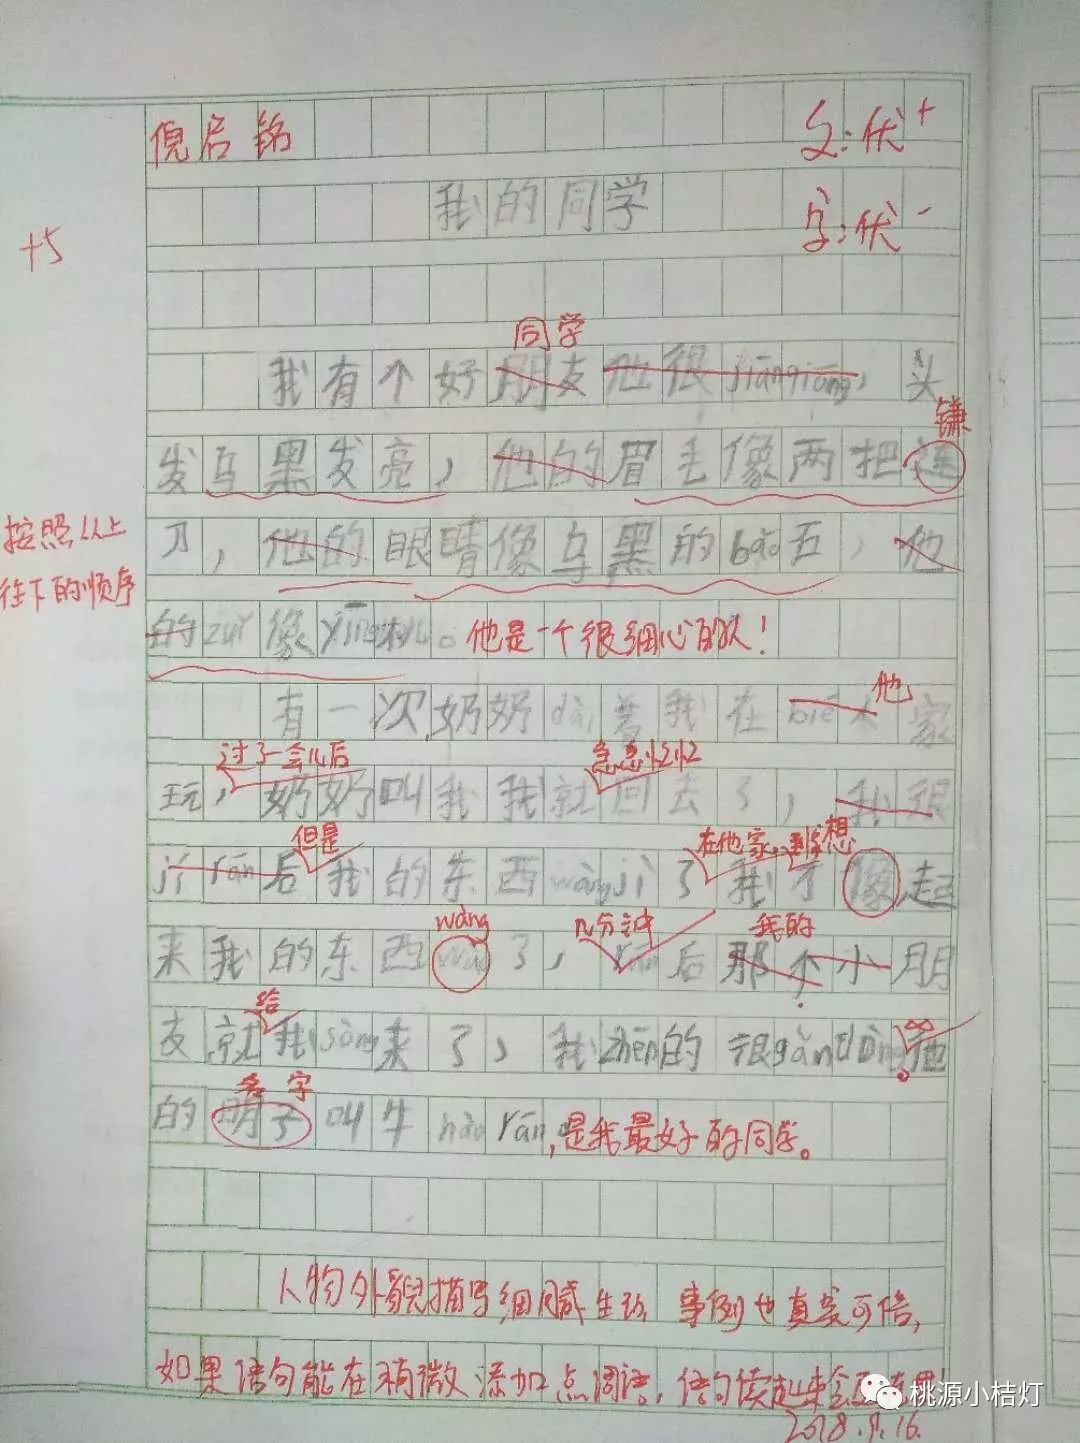 倪启铭
文:优+
我的同学
字:优-
+5
同学
我有个好朋友他很jiānqiáng,头
镰
发乌黑发亮,他的眉毛像两把连
按照从上
刀,他的眼睛像乌黑的bǎo石,他
往下的顺序
的zuǐ像yīng。他是一个很细心的人!
他
有一次奶奶dài着我在bié人家
过了一会儿后 急急忙忙
玩,奶奶叫我我就回去了,我很
但是 在他家。 想
jí rán后我的东西wàngjì了我才像起
wàng 几分钟 我的
来我的东西wàng了,rán后那个小朋
给
友就我sòng来了,我zhēn的很gǎndòng他
名字
的明子叫牛hào rán,是我最好的同学。
人物外貌描写细腻生动 事例也真实可信,
如果语句能在稍微添加点词语,语句读起来会
桃源小桔灯
2018.9.16.